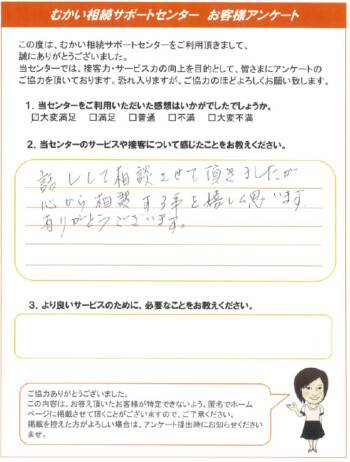 むかい相続サポートセンター　お客様アンケート
この度は、むかい相続サポートセンターをご利用頂きまして、
誠にありがとうございました。
当センターでは、接客力・サービス力の向上を目的として、皆さまにアンケートの
ご協力を頂いております。恐れ入りますが、ご協力のほどよろしくお願い致します。
1．当センターをご利用いただいた感想はいかがでしたでしょうか。
☐大変満足　☐満足　☐普通　☐不満　☐大変不満
2．当センターのサービスや接客について感じたことをお教えください。
して相談させて頂きましたが
心から相談する事を嬉しく思います
ありがとうございます。
3．より良いサービスのために、必要なことをお教えください。
ご協力ありがとうございました。
この内容は、お答え頂いたお客様が特定できないよう、匿名でホーム
ページに掲載させて頂くことがございますので、ご了承ください。
掲載を控えた方がよろしい場合は、アンケート提出時にお知らせください
ませ。